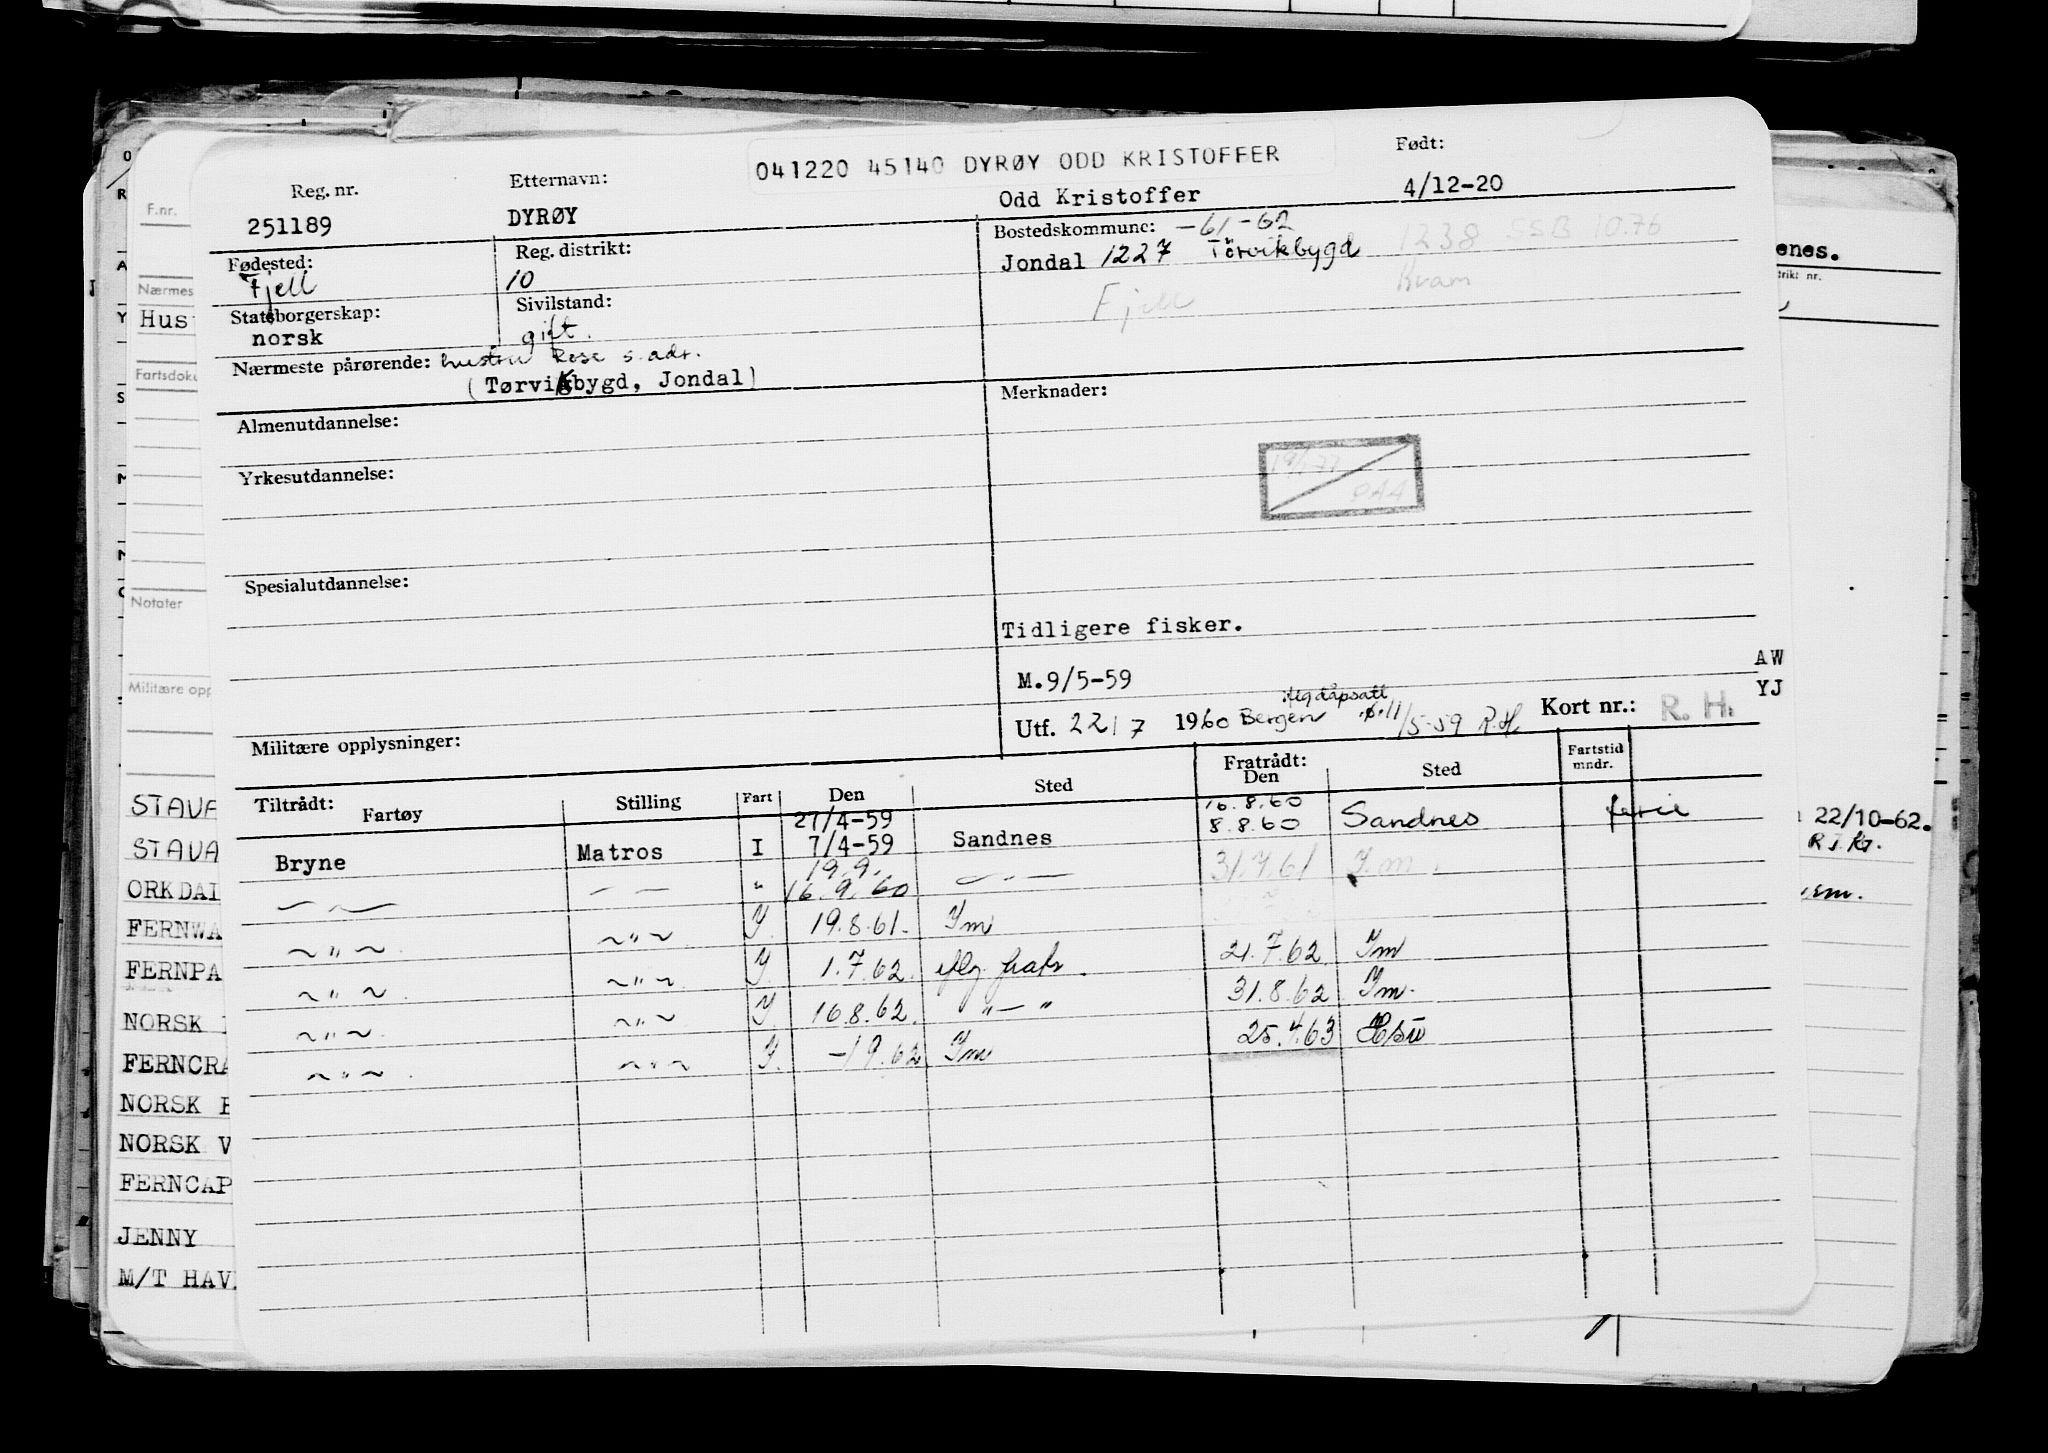 041220 45140 DYRØY ODD KRISTOFFER
Reg. nr. Etternavn: Født:
251189 DYRØY Odd Kristoffer 4/12-20
Fødested: Reg. distrikt: Bostedskommune: -61-62
Fjell 10 Jondal 1227 Törvikbygd 1238 SSB 10.76
Statsborgerskap: Sivilstand: Fjell Kvam
norsk gift.
Nærmeste pårørende: hustru Rose s. adr.
(Tørvikbygd, Jondal)
Almenutdannelse: Merknader:
Yrkesutdannelse:
Spesialutdannelse:
Tidligere fisker.
M.9/5-59 AW
YJ
Utf. 22/7 1960 Bergen 11/5-59 R.H. Kort nr.: R. H.
Militære opplysninger:
Tiltrådt: Fartøy Stilling Fart Den Sted Fratrådt: Den Sted Fartstid mndr.
27/4-59 16.8.60
Bryne Matros I 7/4-59 Sandnes 8.8.60 Sandnes ferie
19.9.
— — — — " 16.9.60 — " — 31.7.61 Ym.
~ " ~ ~ " ~ Y. 19.8.61. Ym
~ " ~ ~ " ~ Y. 1.7.62. 21.7.62. Ym
~ " ~ ~ " ~ Y. 16.8.62. " — " 31.8.62 Ym.
~ " ~ ~ " ~ Y. -1.9.62 Ym 25.4.63
F.nr.
Nærmes
Hus
Fartsdoku
Notater
Militære opp
STAVA
STAVA
ORKDAL
FERNWA
FERNPA
NORSK
FERNCRA
NORSK
NORSK V
FERNCAP
JENNY
M/T HAV
enes.
trikt nr.
22/10-62.